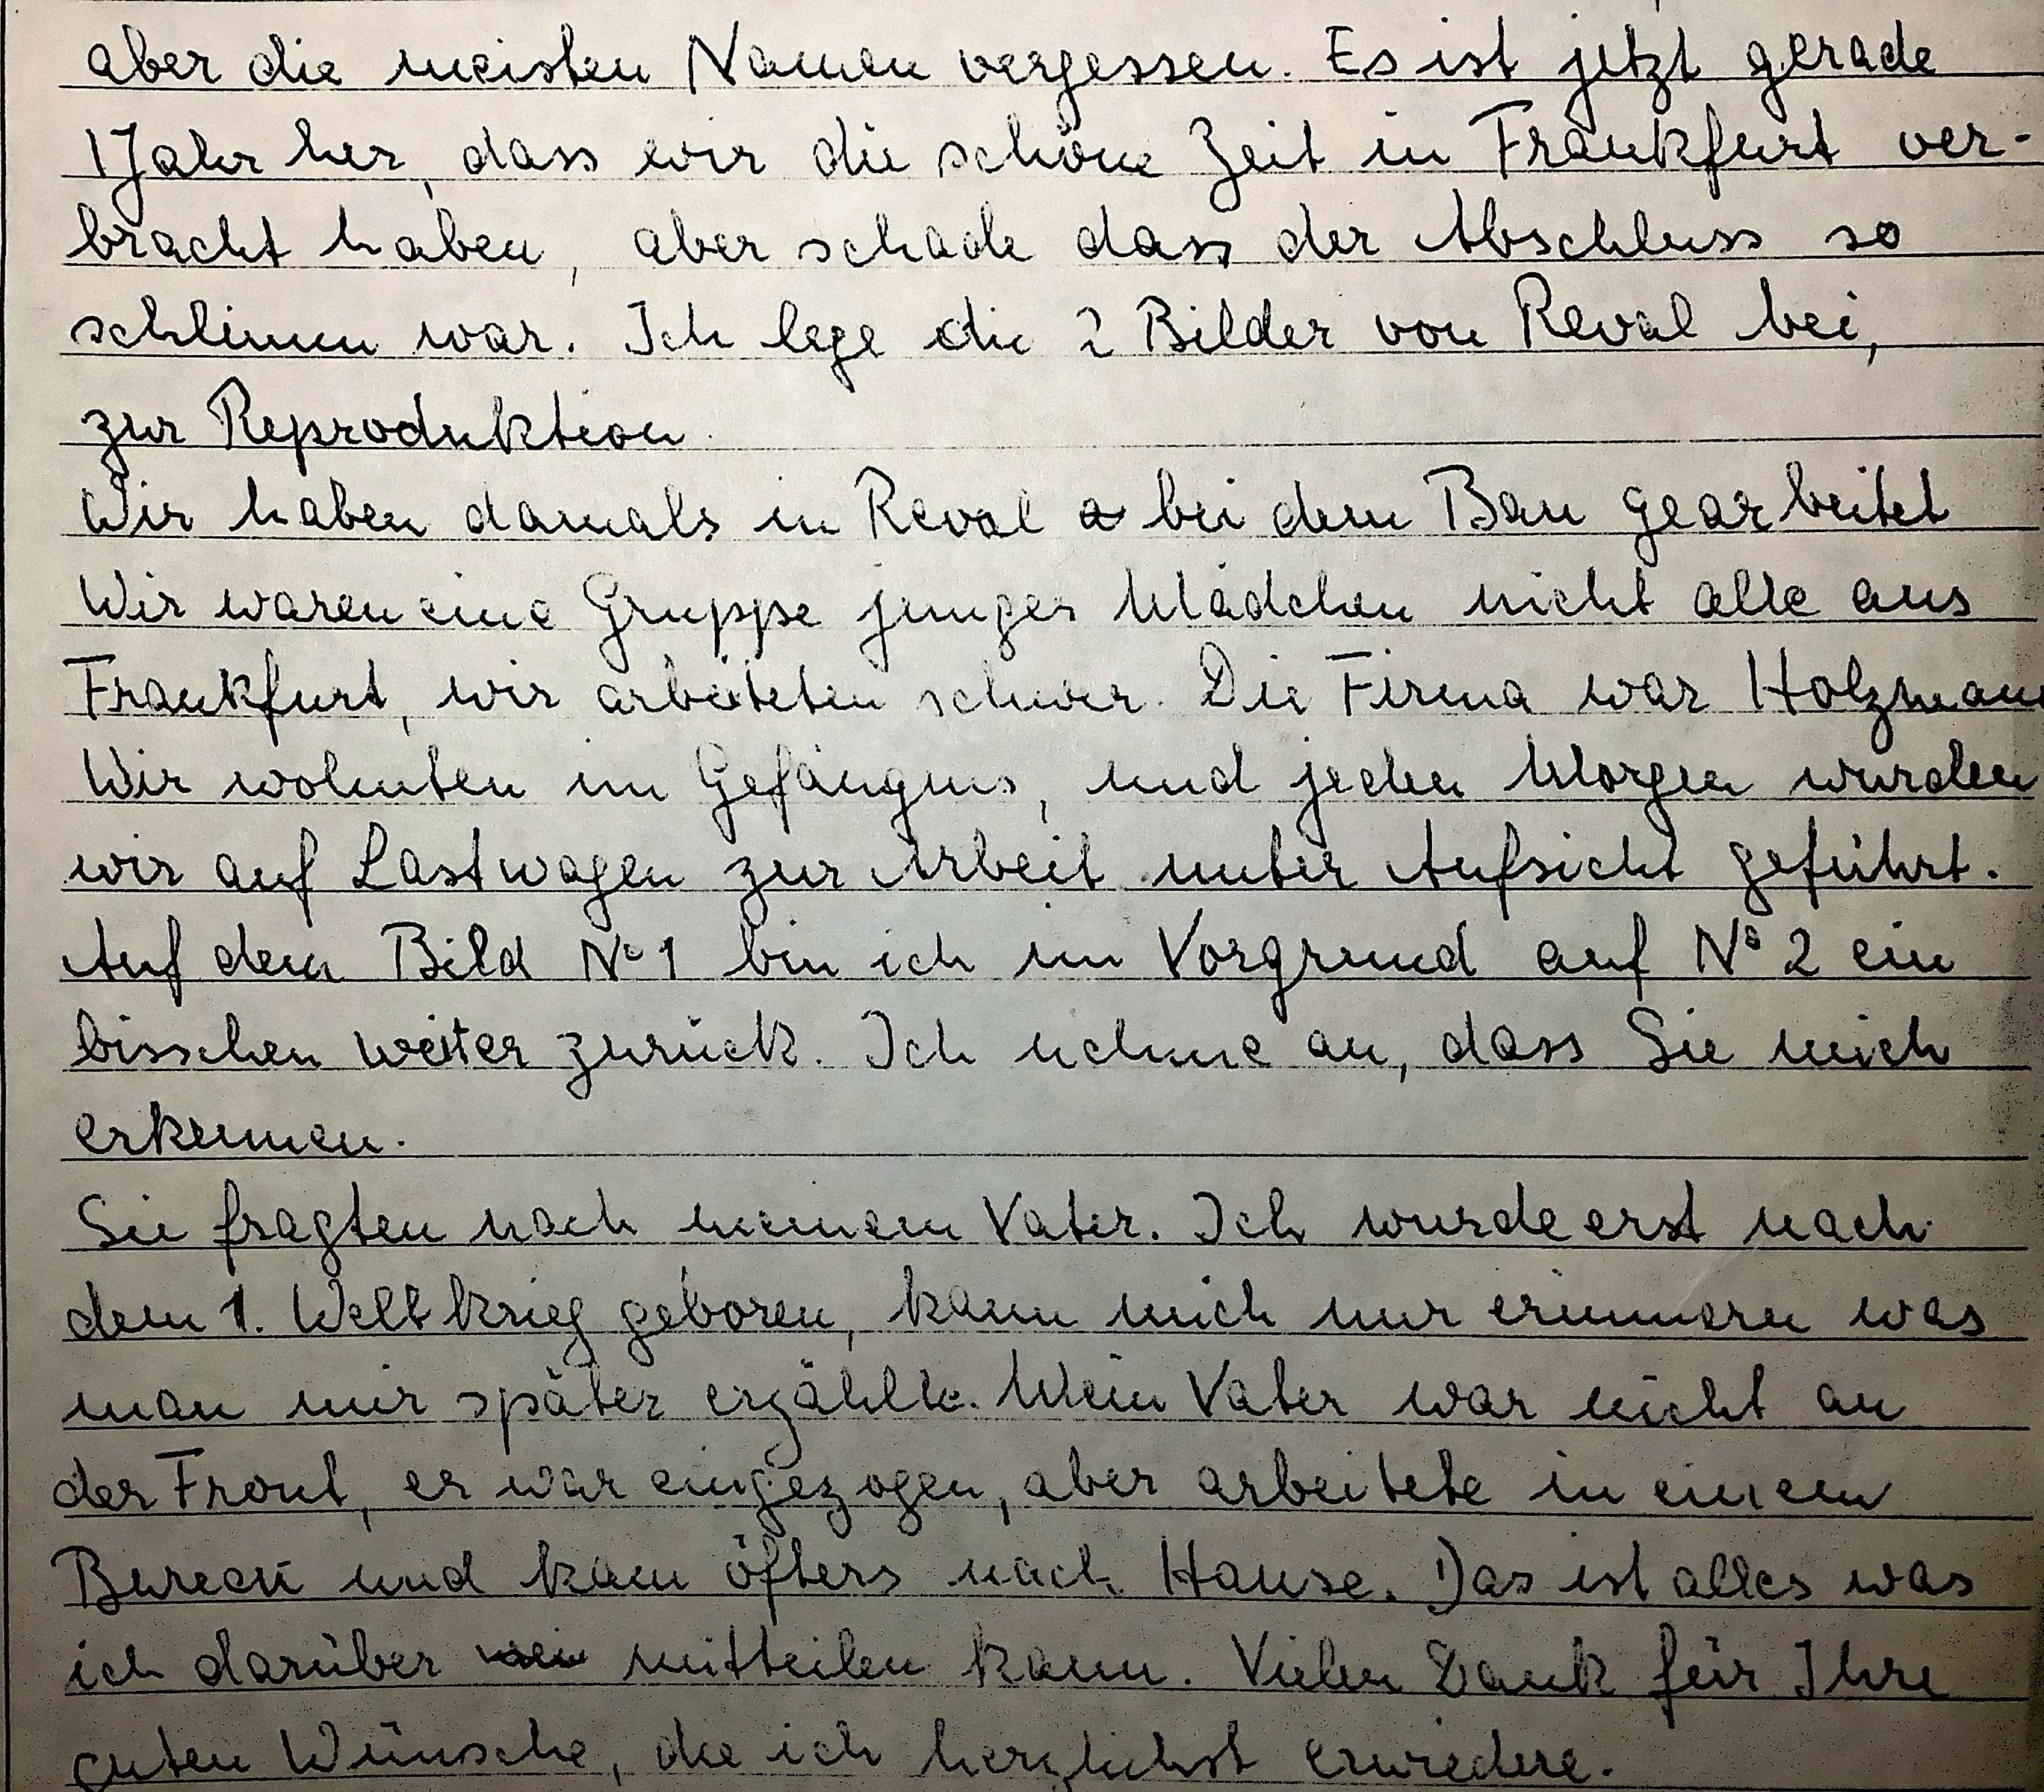 aber die meisten Namen vergessen. Es ist jetzt gerade
1 Jahr her, dass wir die schöne Zeit in Frankfurt ver-
bracht haben, aber schade dass der Abschluss so
schlimm war. Ich lege die 2 Bilder von Reval bei,
zur Reproduktion.
Wir haben damals in Reval a bei dem Bau gearbeitet
Wir waren eine Gruppe junger Mädchen nicht alle aus
Frankfurt, wir arbeiteten schwer. Die Firma war Holzmann
Wir wohnten im Gefängnis, und jeden Morgen wurden
wir auf Lastwagen zur Arbeit unter Aufsicht geführt.
Auf dem Bild No 1 bin ich im Vorgrund auf No 2 ein
bisschen weiter zurück. Ich nehme an, dass Sie mich
erkennen.
Sie fragten nach meinem Vater. Ich wurde erst nach
dem 1. Weltkrieg geboren, kann mich nur erinnern was
man mir später erzählte. Mein Vater war nicht an
der Front, er war eingezogen, aber arbeitete in einem
Bureau und kam öfters nach Hause. Das ist alles was
ich darüber mitteilen kann. Vielen Dank für Ihre
guten Wünsche, die ich herzlichst erwiedere.